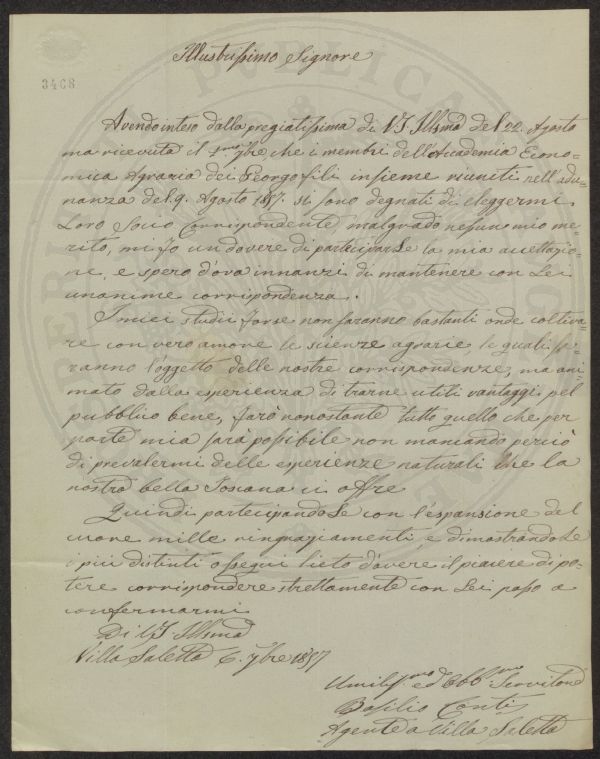 Illustrissimo Signore
3468
Avendo inteso dalla pregiatissima di V.S. Illma del 22. Agosto
ma ricevuta il 7bre che i membri dell'Academia Econo=
mica Agraria dei Georgofili insieme riuniti nell'adu=
nanza del 9. Agosto 1857. si sono degnati di eleggermi
Loro Socio Corrispondente malgrado nessuno mio me=
rito, mi fo un dovere di participarLe la mia accettazio=
ne, e spero d'ora innanzi di mantenere con Lei
unanime corrispondenza.
I miei studii forse non saranno bastanti onde coltiva=
re con vero amore le scienze agrarie, le quali sa=
ranno l'oggetto delle nostre corrispondenze, ma ani
mato dalla esperienza di trarne utili vantaggi pel
pubblico bene, farò nonostante tutto quello che per
parte mia sarà possibile non mancando perciò
di prevalermi delle esperienze naturali che la
nostra bella Toscana ci offre
Quindi partecipandoLe con l'espansione del
cuore mille ringraziamenti, e dimostrandoLe
i più distinti ossequi lieto d'avere il piacere di po=
tere corrispondere strettamente con Lei passo a
confermarmi
Di V.S. Illma
Villa Saletta 6. 7bre 1857
Umiliss.mo ed Obb.mo Servitore
Basilio Conti
Agente a Villa Saletta